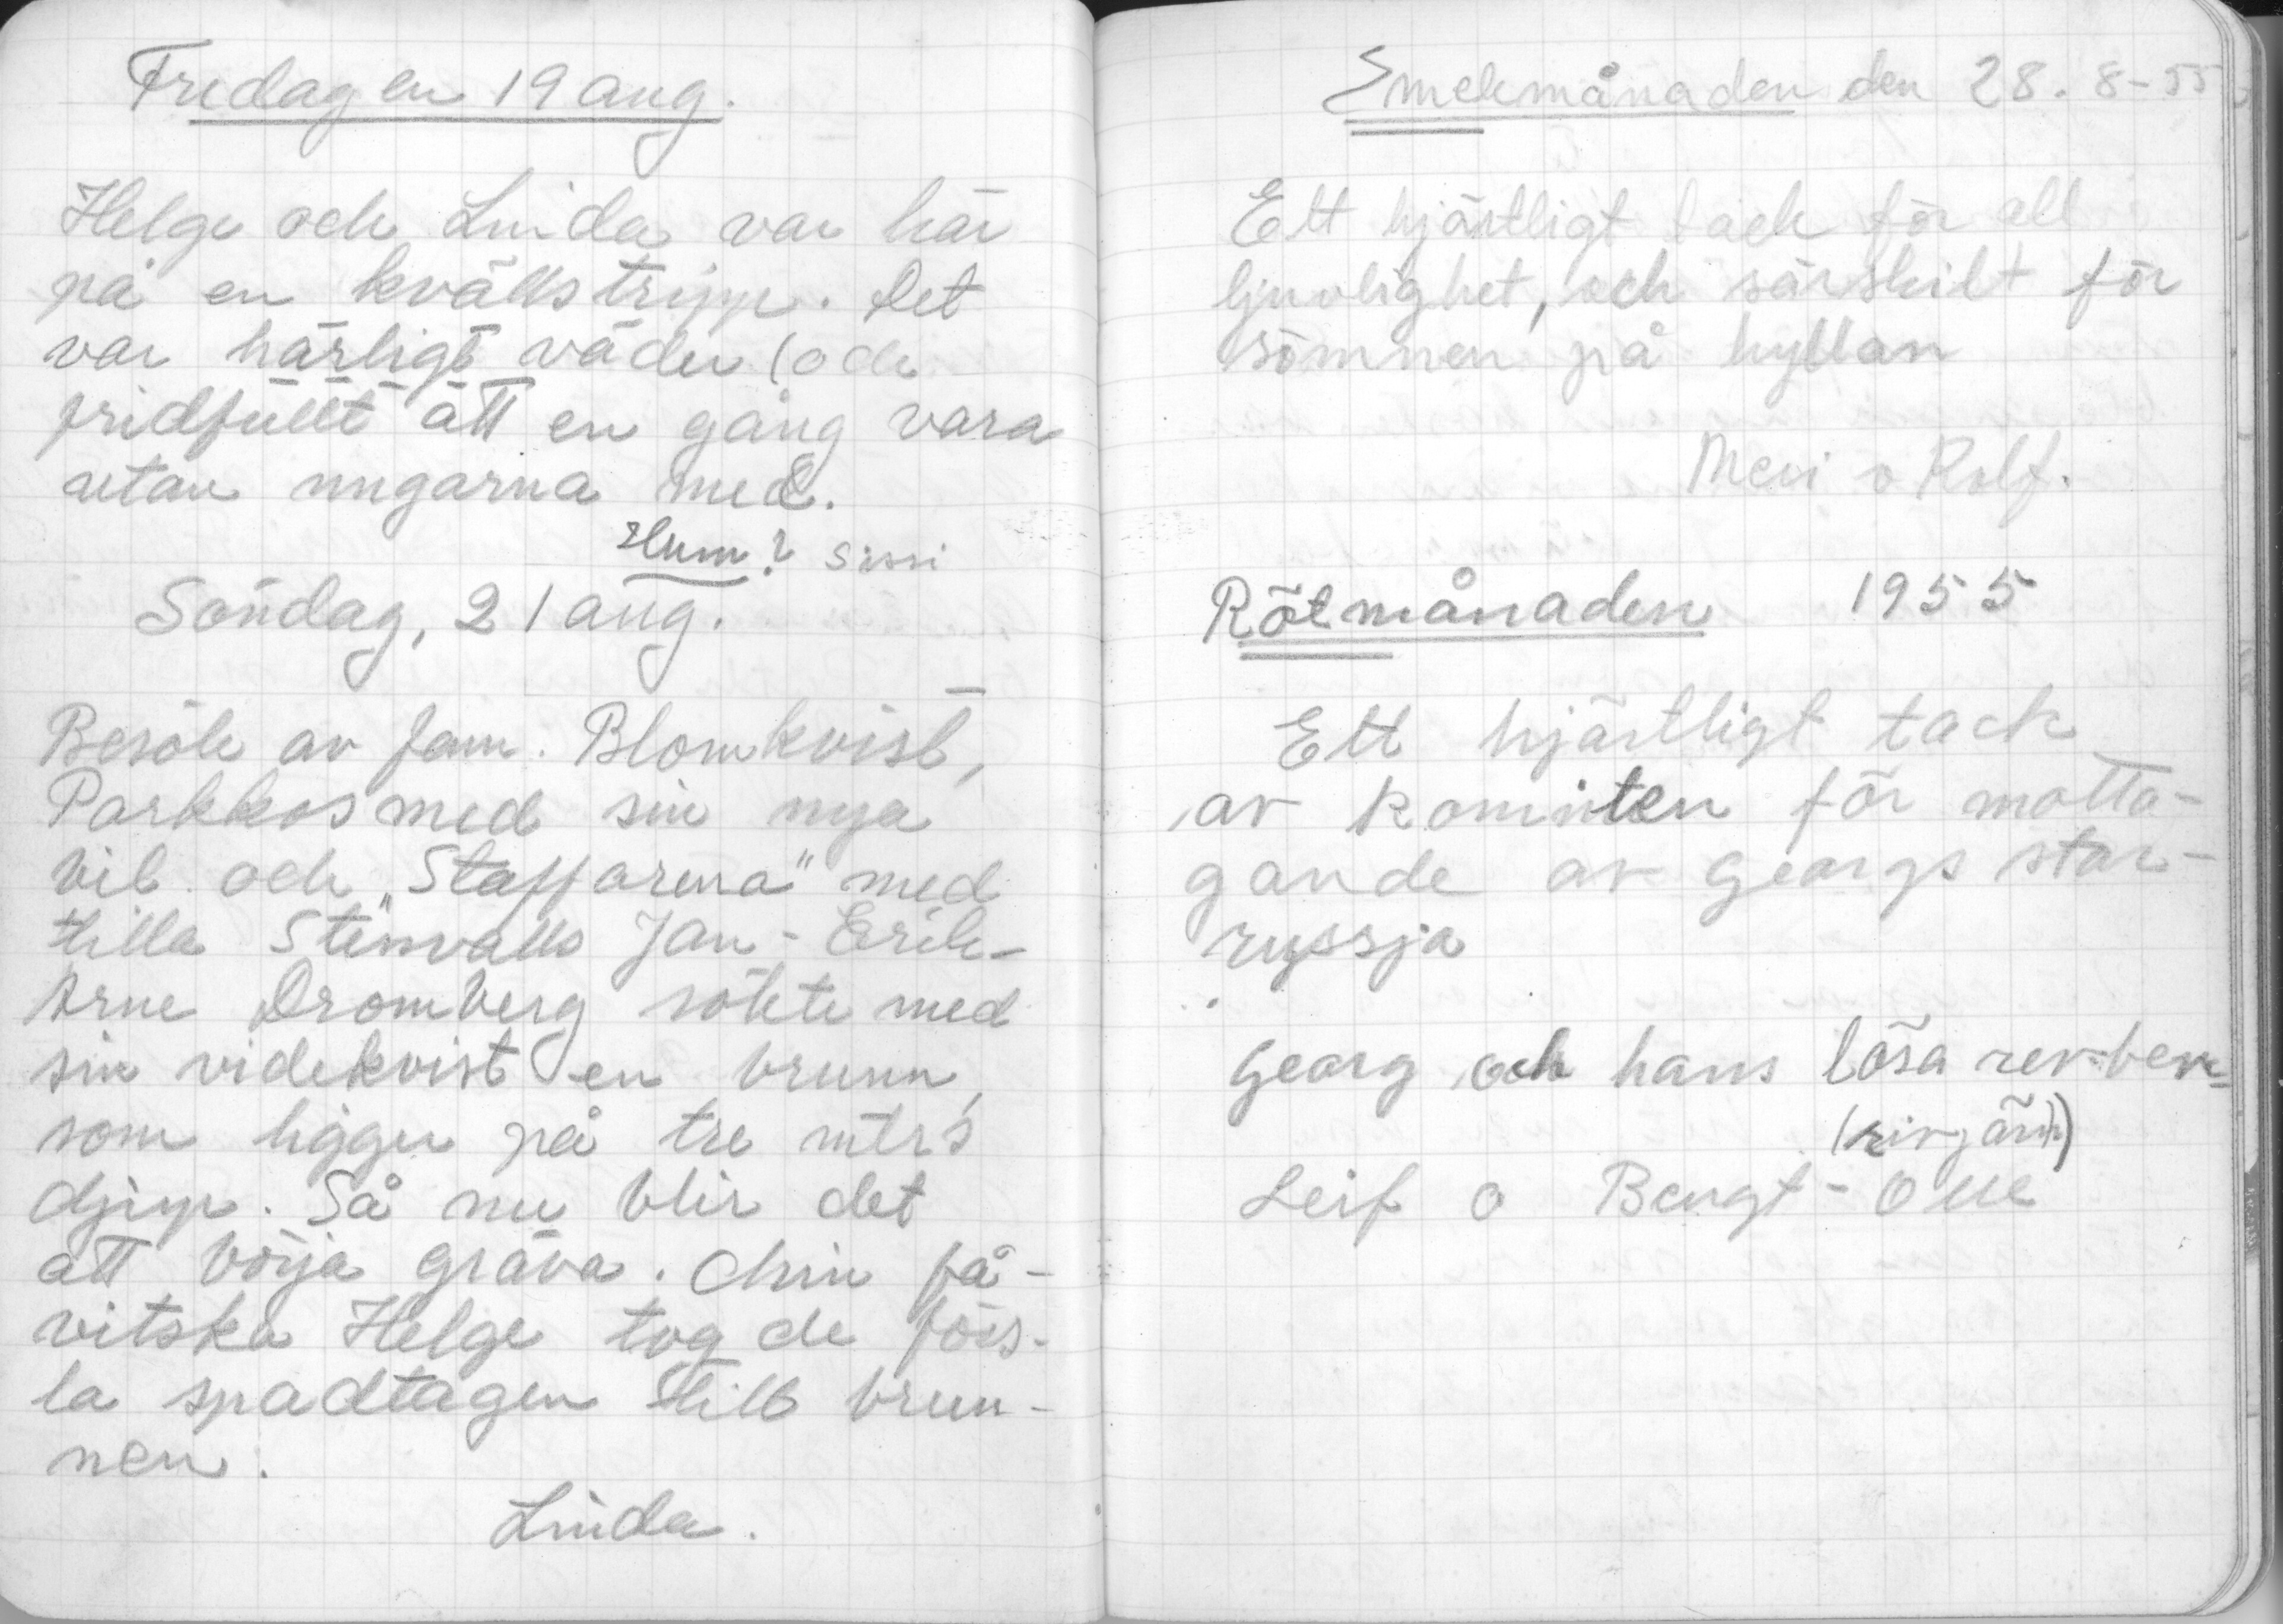 Fredagen 19 aug.
Helge och Linda var här
på en kvällstripp. Det
var härligt väder (och
fridfullt att en gång vara
utan ungarna med.
Hum? Sissi
Söndag, 21 aug.
Besök av fam. Blomkvist,
Parkkos med sin nya
bil och "Staffarena" med
tilla Stenvalls Jan-Erik-
Arne Dromberg sökte med
sin videkvist en brunn,
som ligger på tre mtr's
djup. Så nu blir det
att börja gräva. Min få-
vitska Helge tog de förs-
ta spadtagen till brun-
nen.
Linda.
Smekmånaden den 28. 8-55
Ett hjärtligt tack för all
ljuvlighet, och särskilt för
sömnen på hyllan
Meri o Rolf.
Rötmånaden 1955
Ett hjärtligt tack
av komiten för motta-
gande av Georgs stor-
ryssja
Georg och hans lösa rev-ben
(rivjärn)
Leif o Bengt-Olle